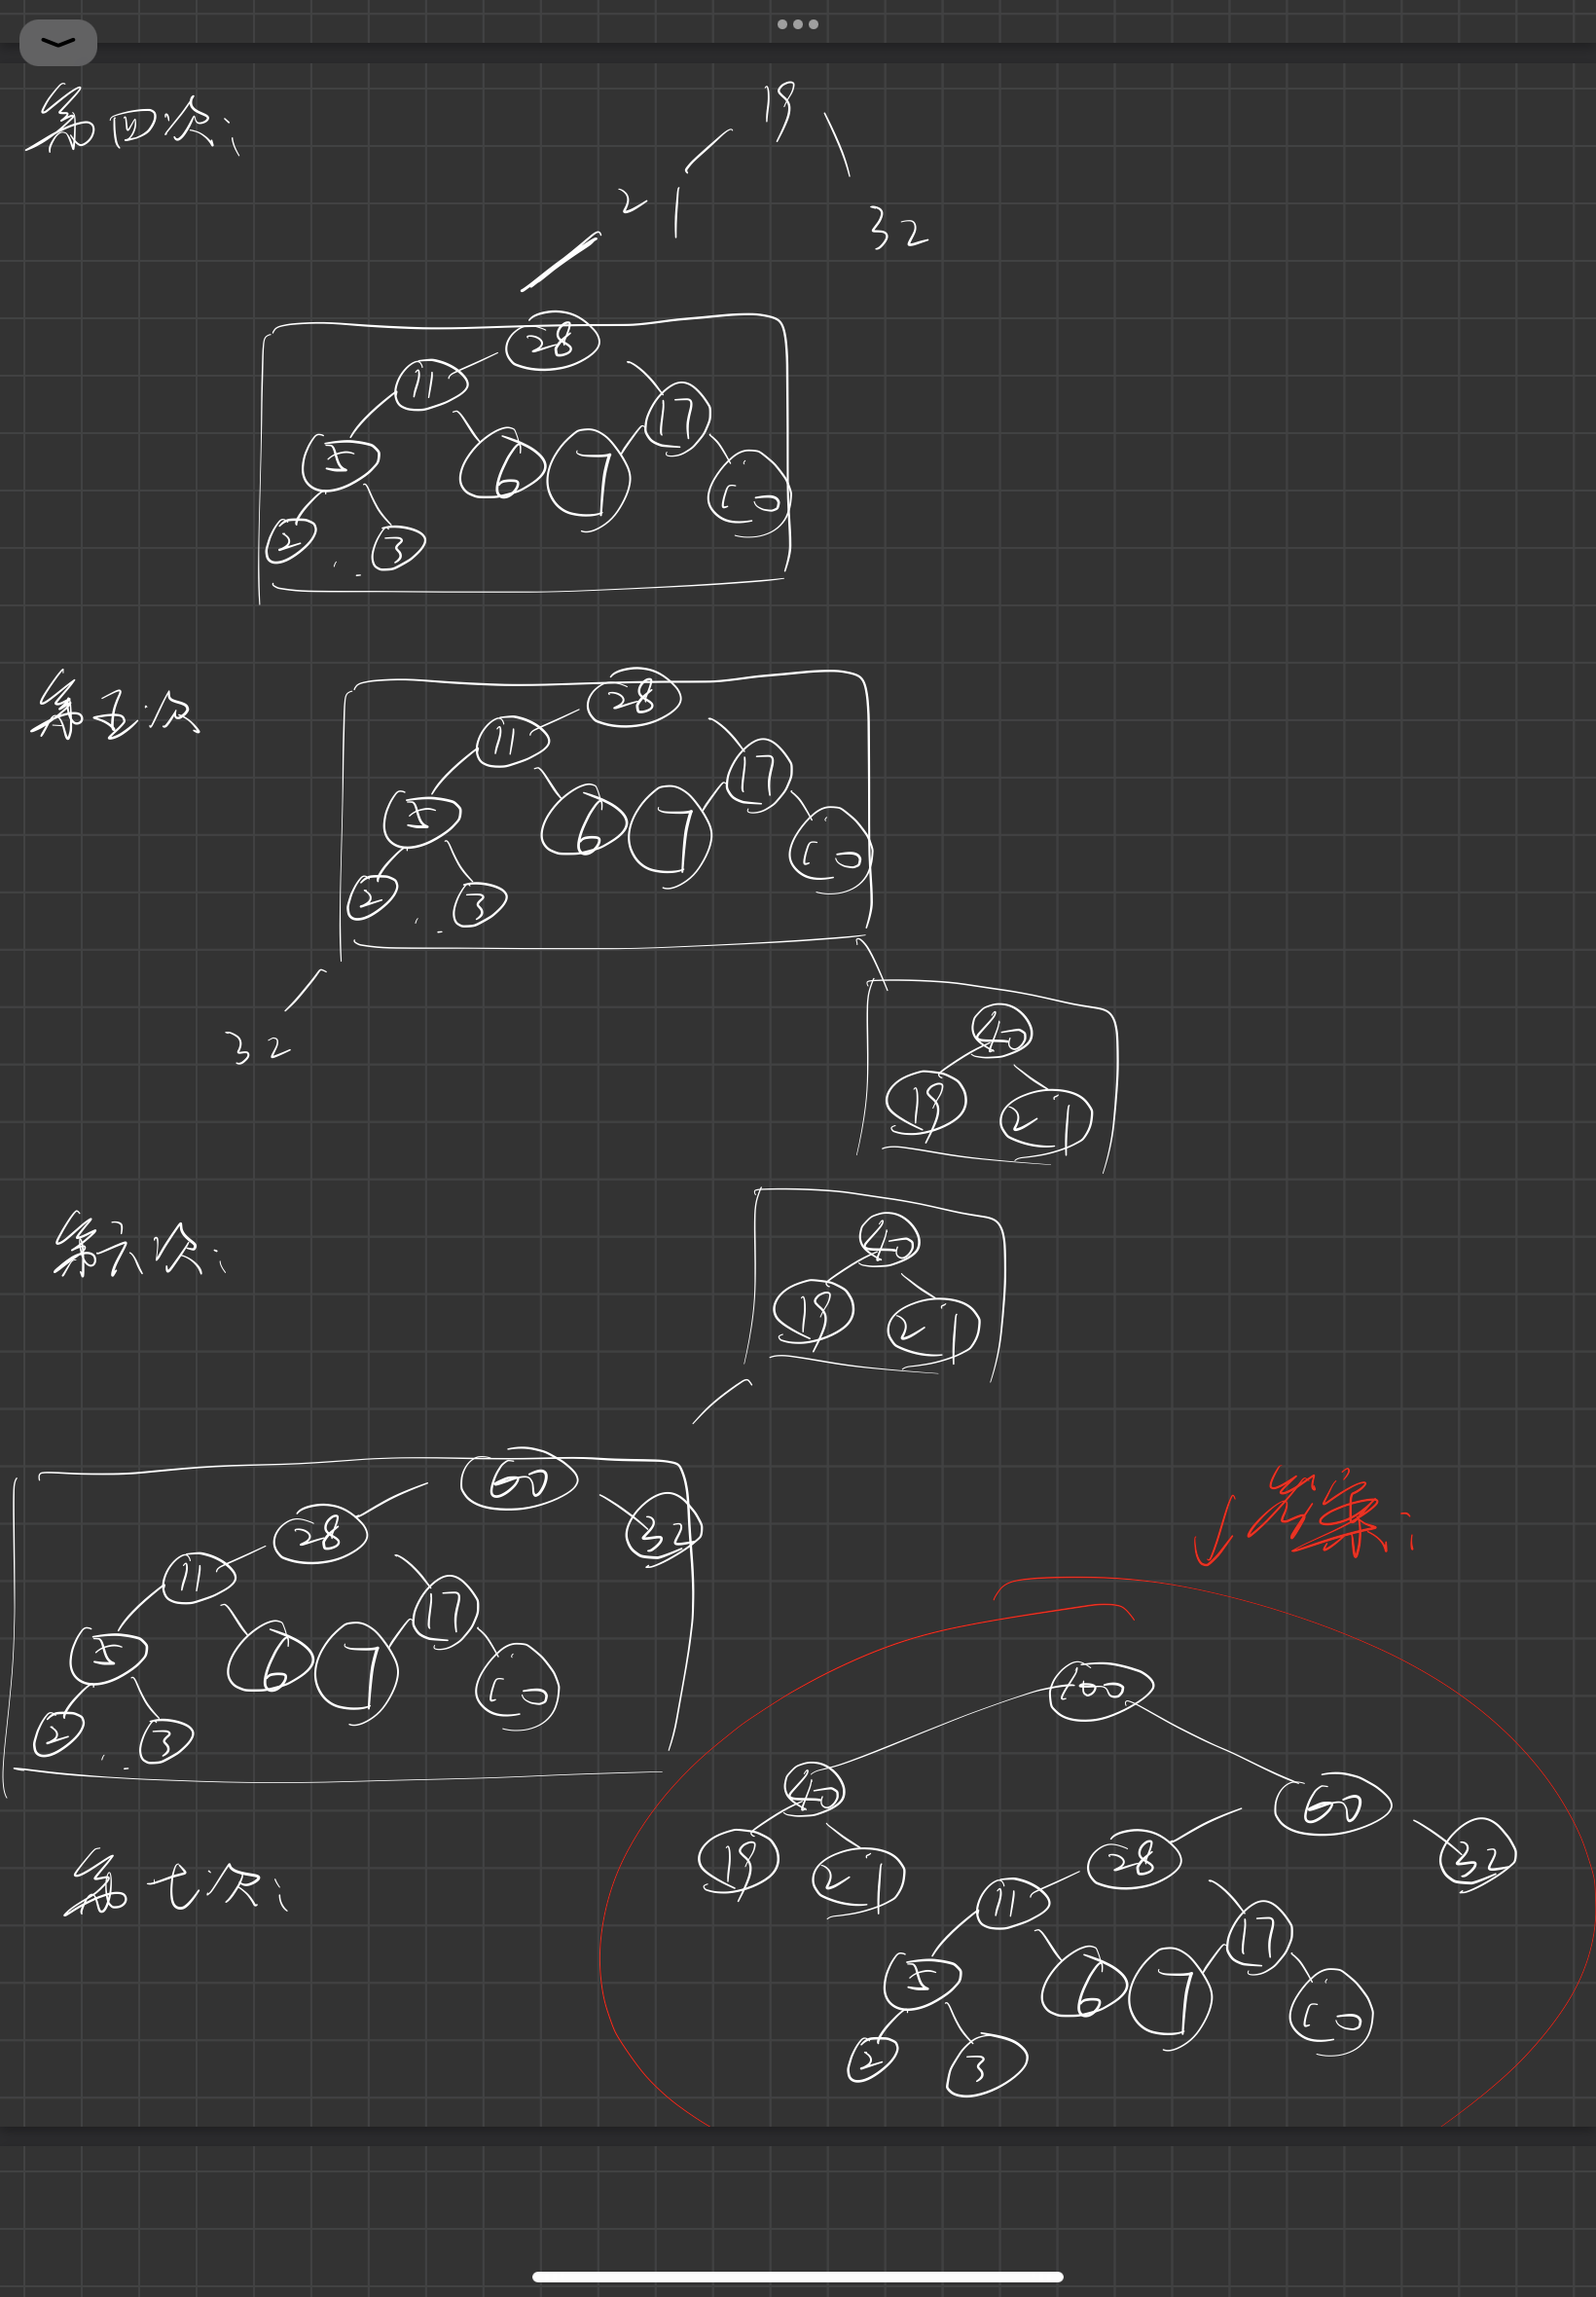 第四次:
19
21
32
28
11
17
5
6
7
10
2
3
第五次
28
11
17
5
6
7
10
2
3
32
40
19
21
第六次:
40
19
21
60
28
32
11
17
5
6
7
10
2
3
答案:
100
40
60
19
21
28
32
11
17
5
6
7
10
2
3
第七次: